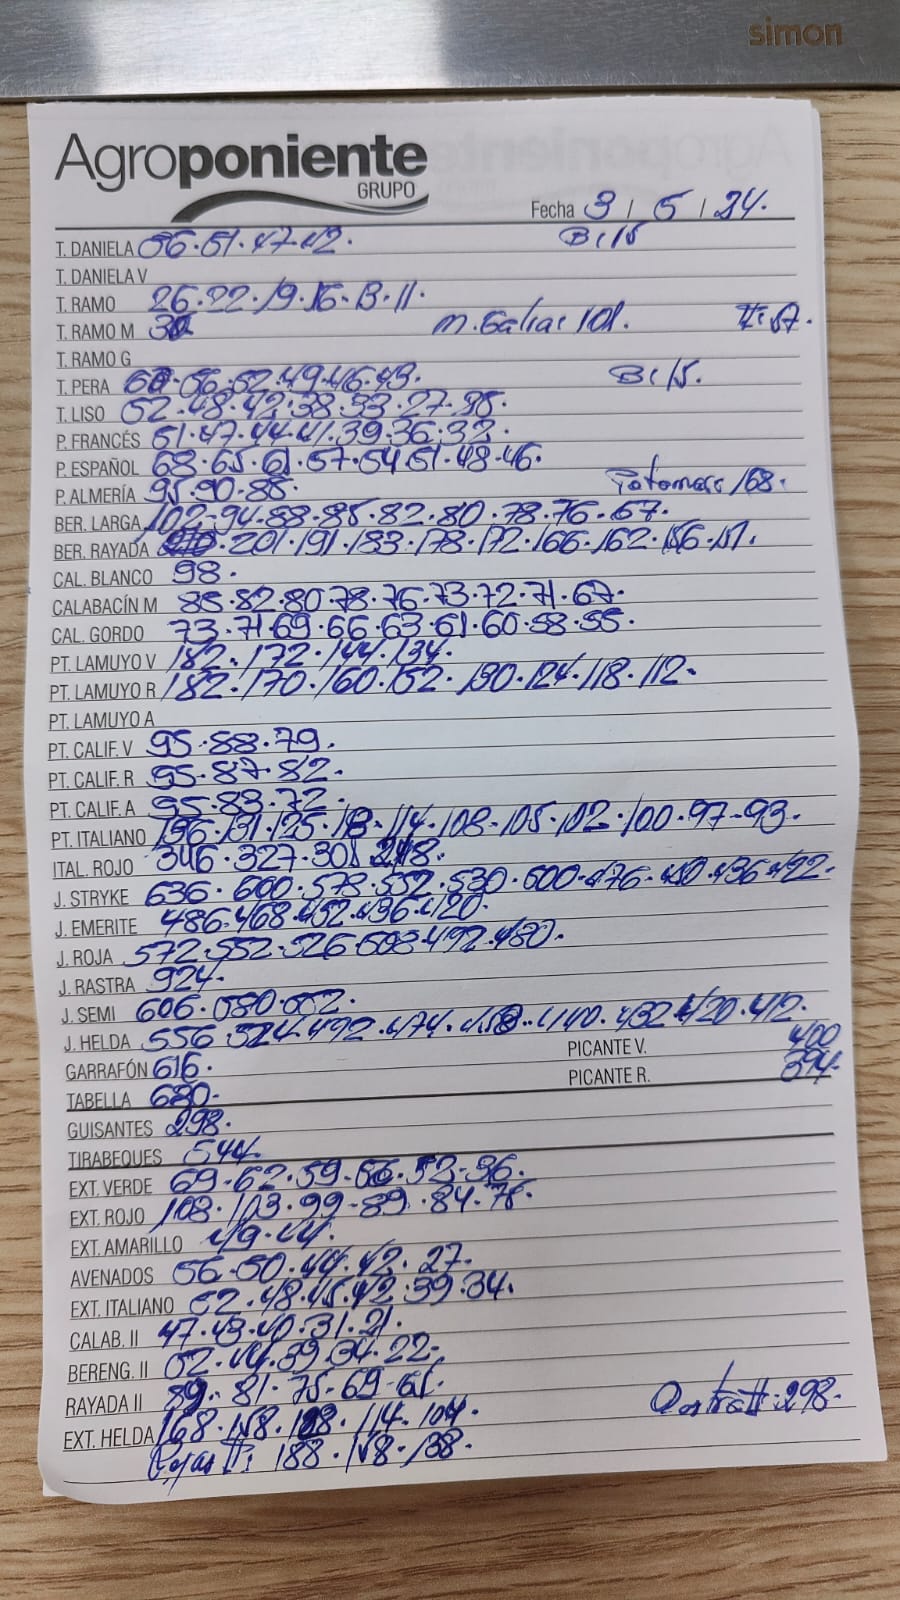 simon
Agroponiente
GRUPO
Fecha 3 / 5 / 24.
T. DANELA 56.51.47.42. B:15
T. DANIELA V
T. RAMO 26.22.19.16.13.11.
T. RAMO M M. Galiac 101. II:57.
T. RAMO G
T. PERA 56.52.49.46.43. B:15.
T. LISO 52.48.42.38.33.27.
P. FRANCÉS 51.47.44.41.39.36.32.
P. ESPAÑOL 68.65.61.57.54.51.48.46.
P. ALMERÍA 95.90.88. 168.
BER. LARGA 102.94.88.85.82.80.78.76.67.
BER. RAYADA 201.191.183.178.172.166.162.156.151.
CAL. BLANCO 98.
CALABACÍN M 85.82.80.78.76.73.72.71.67.
CAL. GORDO 73.71.69.66.63.61.60.58.55.
PT. LAMUYO V 182.172.144.134.
PT. LAMUYO R 182.170.160.152.130.124.118.112.
PT. LAMUYO A
PT. CALIF. V 95.88.79.
PT. CALIF. R 95.87.82.
PT. CALIF. A 95.83.72.
PT. ITALIANO 136.131.125.118.114.108.105.102.100.97.93.
ITAL. ROJO 346.327.301.
J. STRYKE 636.600.578.552.530.500.476.450.436.422.
J. EMERITE 486.468.452.436.420.
J. ROJA 572.552.526.508.492.480.
J. RASTRA 924.
J. SEMI 606.580.552.
J. HELDA 556.524.492.474.458.440.432.420.412.
PICANTE V. 400
GARRAFÓN 616.
PICANTE R. 394.
TABELLA 630.
GUISANTES 298.
TIRABEQUES 544.
EXT. VERDE 69.62.59.56.52.36.
EXT. ROJO 108.103.99.89.84.78.
EXT. AMARILLO 49.44.
AVENADOS 56.50.44.42.27.
EXT. ITALIANO 52.48.45.42.39.34.
CALAB. II 47.43.40.31.21.
BERENG. II 52.44.39.34.22.
RAYADA II 89.81.75.69.61. II:298.
EXT. HELDA 168.158.128.114.104.
Rojas II: 188.158.138.